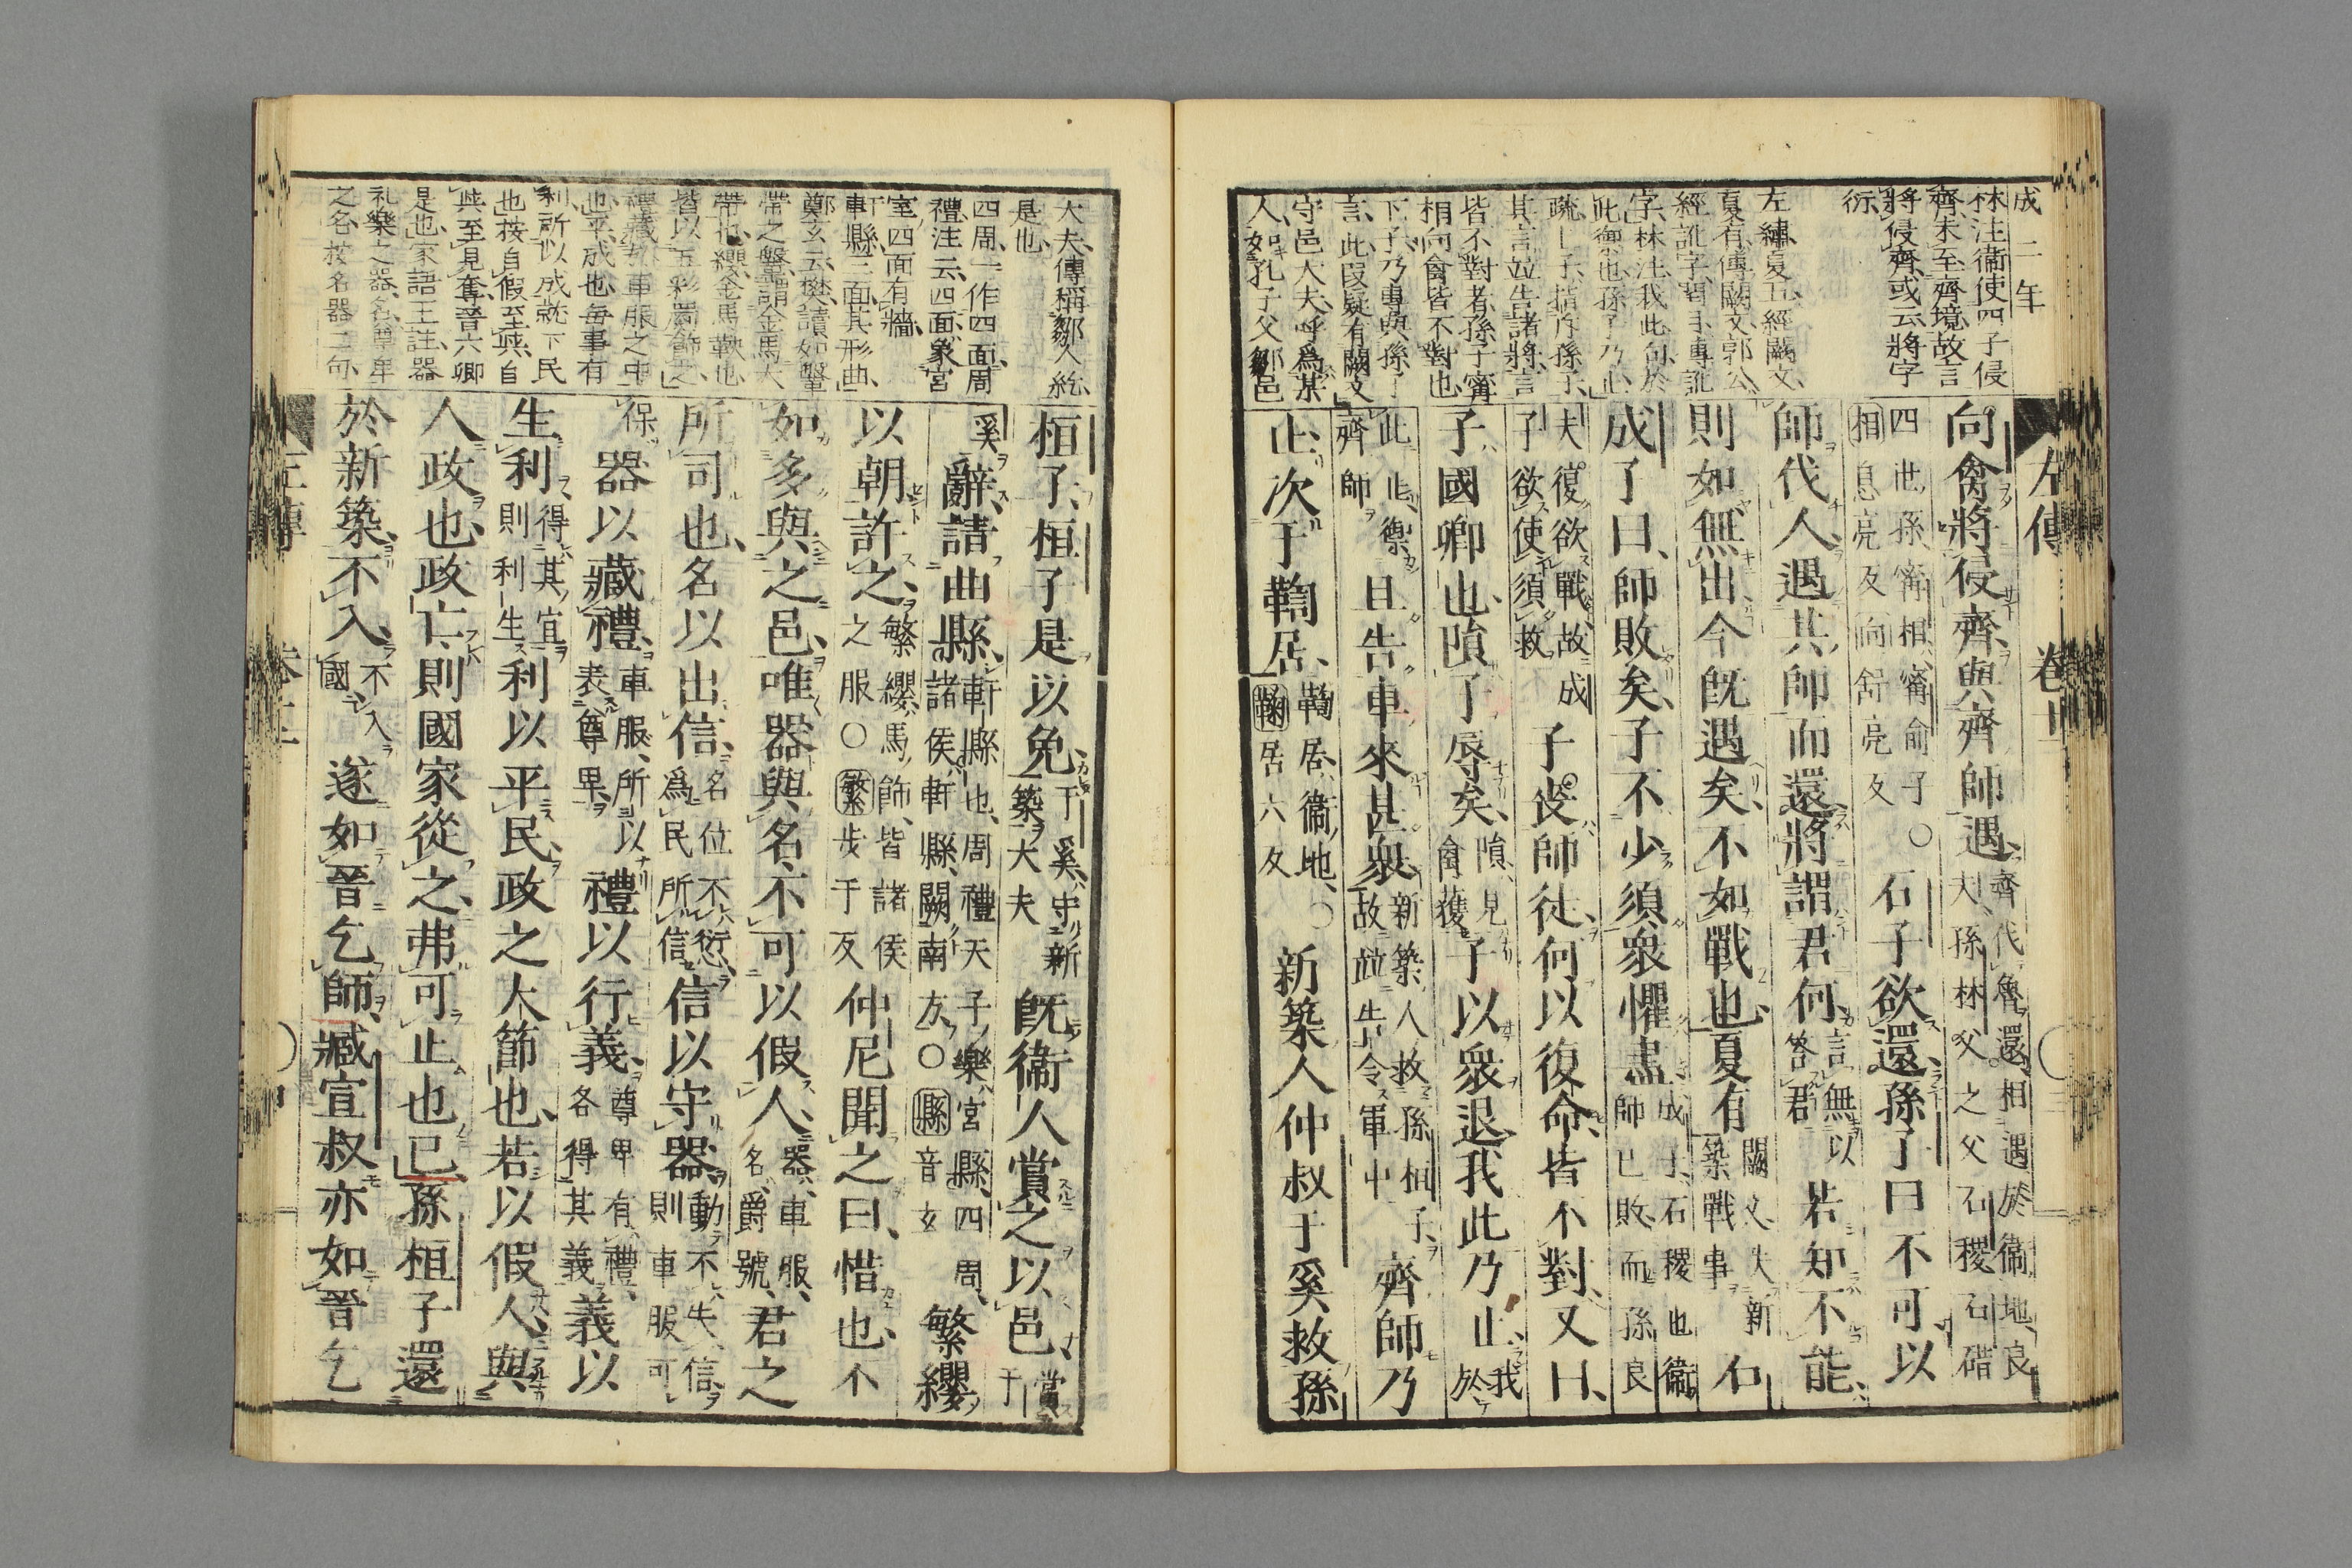 左傳 卷十
成二年
林注衛使四子侵
齊未至齊境故言
將侵齊或云將字
衍
左繡夏五經闕文
夏有傳闕文郭公
經訛字閏月傳訛
字林注我此句於
此禦也孫子乃止
疏上子指斥孫子
其言竝告諸將言
皆不對者孫子甯
相向禽皆不對也
下子乃專與孫子
言此段疑有闕文
守邑大夫呼爲某
人如孔子父鄹邑
向禽將侵齊與齊師遇齊伐魯還相遇於衛地良夫孫林父之父石稷石碏
四世孫甯相甯俞子○相息亮反向舒亮反石子欲還孫子曰不可以
師伐人遇其師而還將謂君何言無以答君若知不能
則如無出今既遇矣不如戰也夏有闕文失新築戰事石
成子曰師敗矣子不少須衆懼盡成子石稷也衛師已敗而孫良
夫復欲戰故成子欲使須救子喪師徒何以復命皆不對又曰
子國卿也隕子辱矣隕見禽獲子以衆退我此乃止我於
此止禦齊師且告車來甚衆新築人救孫桓子故竝告令軍中齊師乃
止次于鞫居鞫居衛地○鞫居六反新築人仲叔于奚救孫
大夫傳稱鄹人紇
是也
四周一作四面周
禮注云四面象宮
室四面有牆
軒縣三面其形曲
鄭玄云樊讀如鞶
帶之鞶謂金馬大
帶也纓金馬鞅也
皆以五彩罽飾之
禮藏於車服之中
也平成也毎事有
利所以成就下民
也按自假至與自
與至見奪晉六卿
是也家語王註器
礼樂之器名尊卑
之名按名器二句
桓子桓子是以免于奚守新築大夫既衛人賞之以邑賞于
奚辭請曲縣軒縣也周禮天子樂宮縣四周諸侯軒縣闕南方○縣音玄繁纓
以朝許之繁纓馬飾皆諸侯之服○繁步干反仲尼聞之曰惜也不
如多與之邑唯器與名不可以假人器車服名爵號君之
所司也名以出信名位不愆爲民所信信以守器動不失信則車服可
保器以藏禮車服所以表尊卑禮以行義尊卑有禮各得其義義以
生利得其宜則利生利以平民政之大節也若以假人與
人政也政亡則國家從之弗可止也已孫桓子還
於新築不入不入國遂如晉乞師臧宣叔亦如晉乞